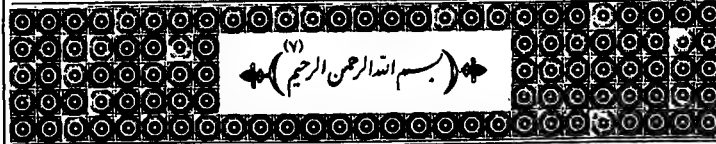 (٧)
﴿بسم الله الرحمن الرحيم﴾